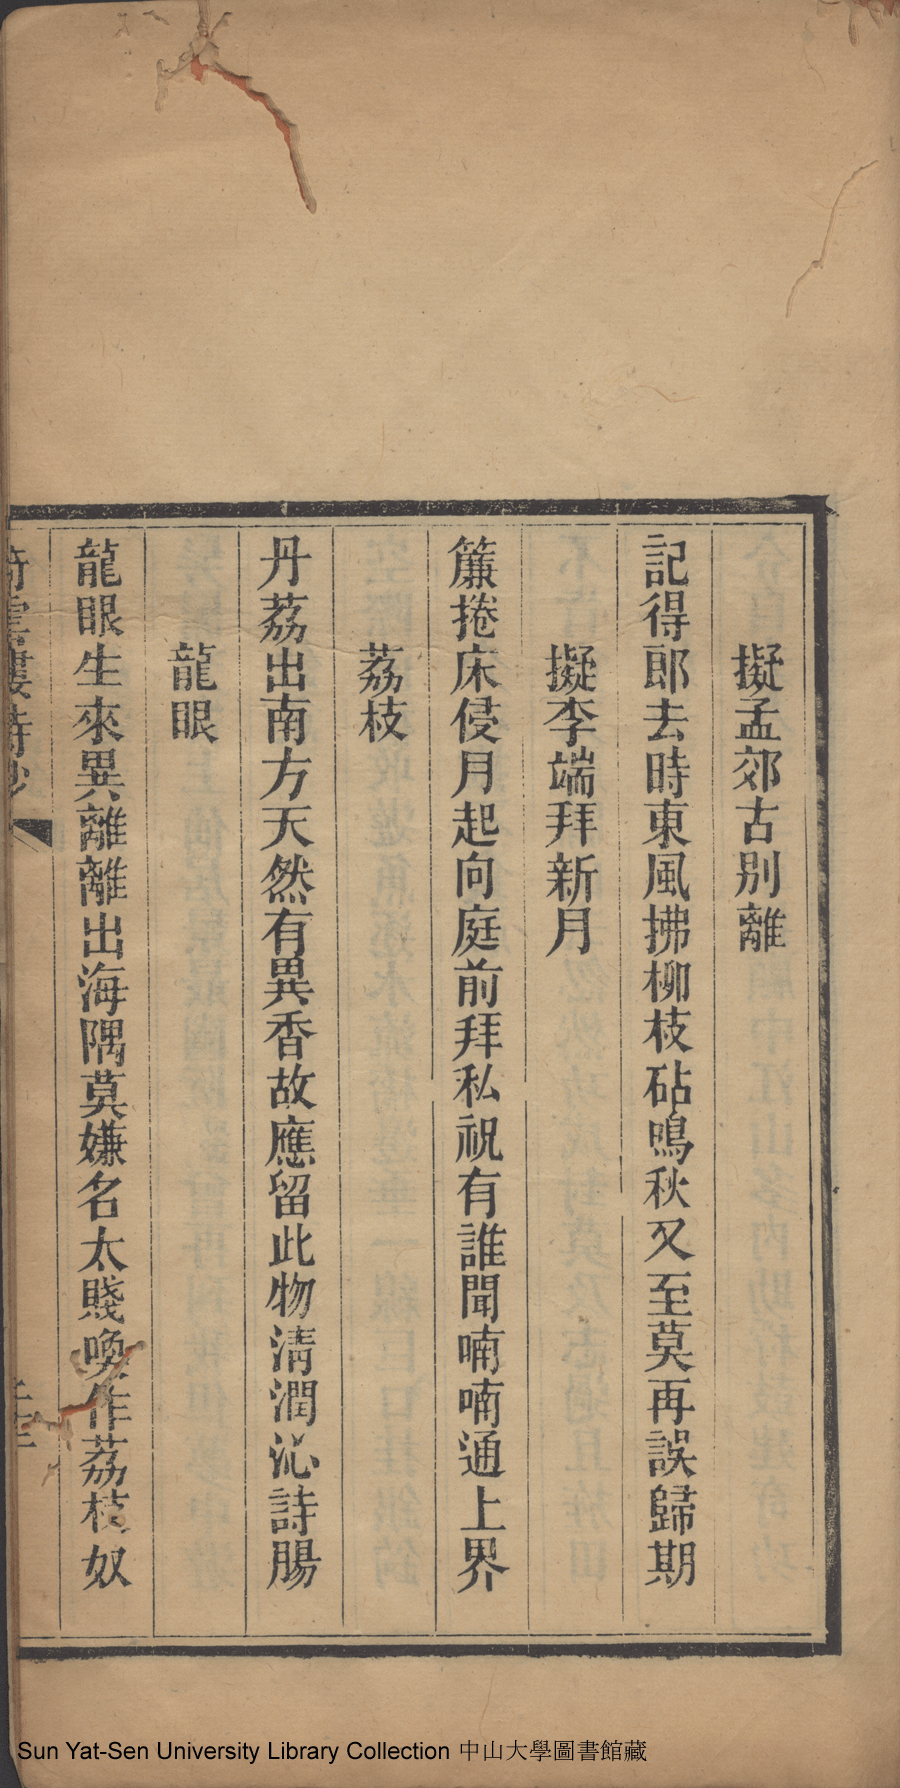 擬孟郊古別離
記得郎去時東風拂柳枝砧鳴秋又至莫再誤歸期
擬李端拜新月
簾捲床侵月起向庭前拜私祝有誰聞喃喃通上界
荔枝
丹荔出南方天然有異香故應留此物淸潤沁詩腸
龍眼
龍眼生來異離離出海隅莫嫌名太賤喚作荔枝奴
雲樓詩鈔
Sun Yat-Sen University Library Collection 中山大學圖書館藏